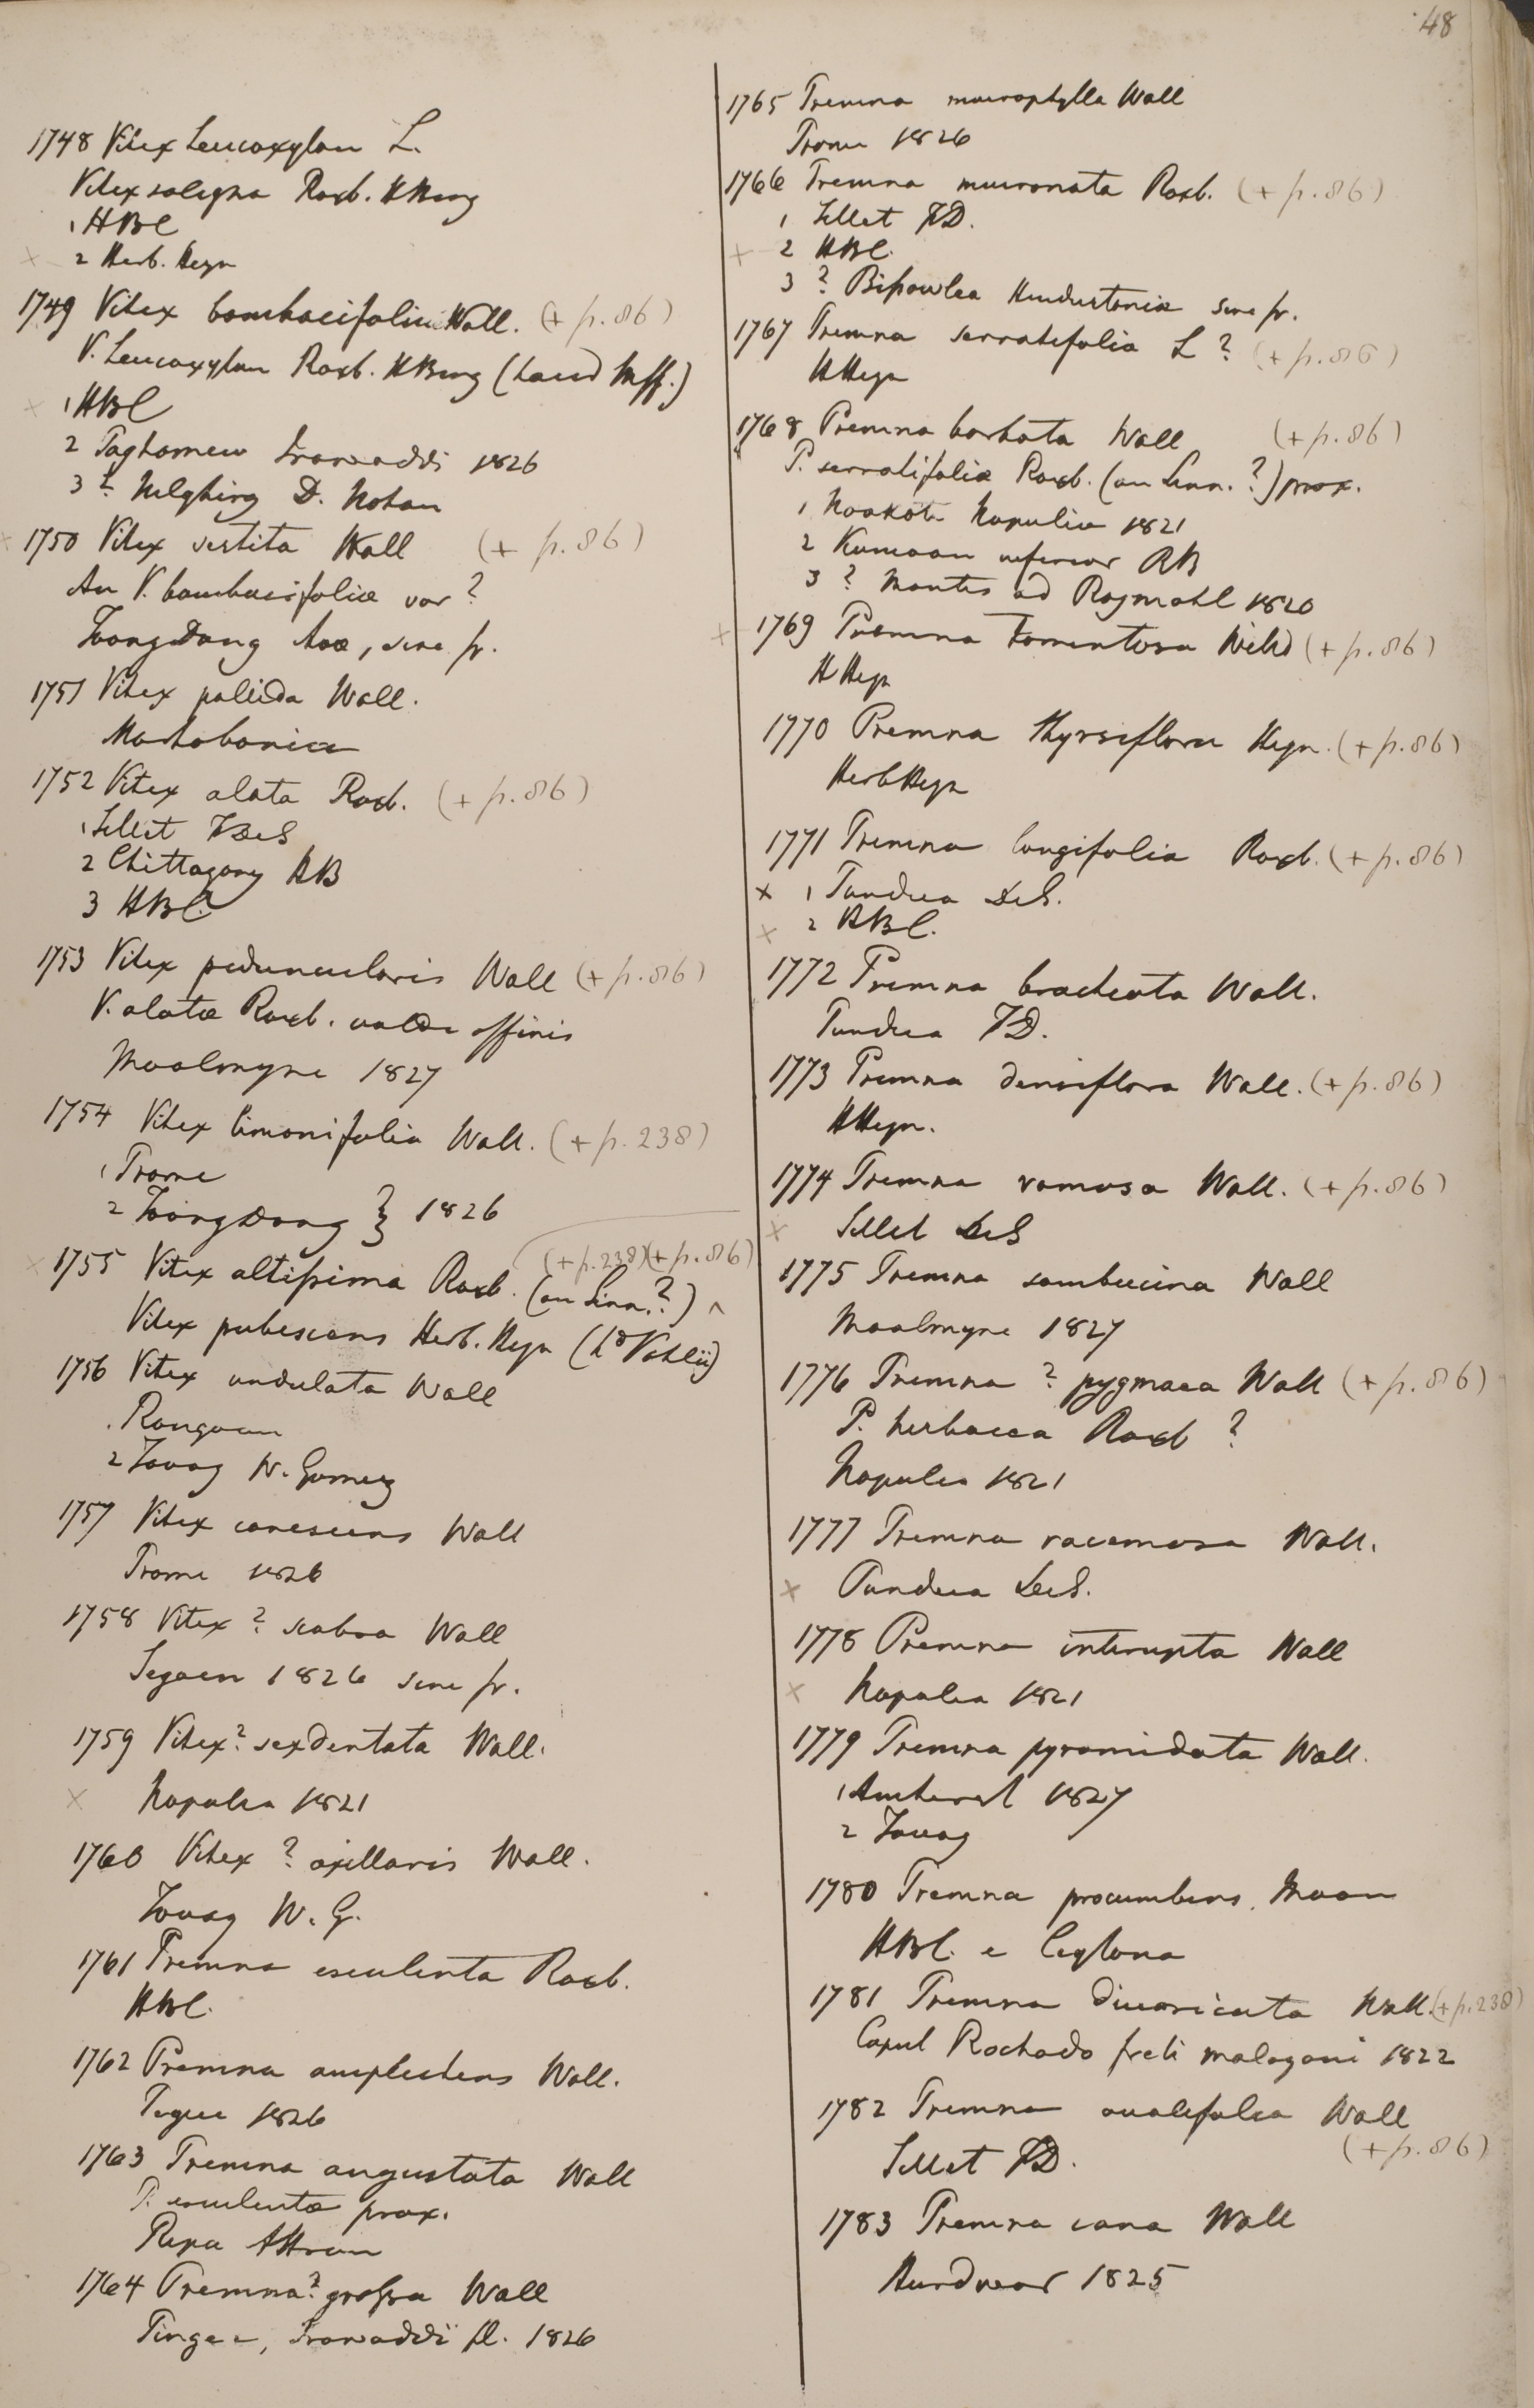 48
1748 Vitex Leucoxylon L.
Vitex saligna Roxb. HBeng
1 HBC
× 2 Herb. Heyn
1749 Vitex bombacifolia Wall. (+ p. 86)
V. Leucoxylon Roxb. HBeng (haud Linff.)
× 1 HBC
2 Taghamew Irawaddi 1826
3 ? Nelghiry D. Noton
× 1750 Vitex vestita Wall (+ p. 86)
An V. bombacifoliæ var ?
Toong Dong Avæ, sine fr.
1751 Vitex pallida Wall.
Martabania
1752 Vitex alata Roxb. (+ p. 86)
1 Sillet FDeS
2 Chittagong RB
3 HBC.
1753 Vitex peduncularis Wall (+ p. 86)
V. alatæ Roxb. valde affinis
Moalmyne 1827
1754 Vitex limonifolia Wall. (+ p. 238)
1 Prome
2 Toong Dong } 1826
(+ p. 238) (+ p. 86)
× 1755 Vitex altissima Roxb. (an Linn. ?) ^
Vitex pubescens Herb. Heyn (hd Vahlii)
1756 Vitex undulata Wall
. Rangoon
2 Tavoy W. Gomez
1757 Vitex canescens Wall
Prome 1826
1758 Vitex ? scabra Wall
Segaen 1826 sine fr.
1759 Vitex ? sexdentata Wall.
× Napalia 1821
1760 Vitex ? axillaris Wall.
Tavoy W. G.
1761 Premna esculenta Roxb.
HBC.
1762 Premna amplectens Wall.
Pegue 1826
1763 Premna angustata Wall
P. esculentæ prox.
Ripa Attran
1764 Premna ? grossa Wall
Pingee, Irawaddi fl. 1826
1765 Premna macrophylla Wall
Prome 1826
1766 Premna mucronata Roxb. (+ p. 86)
1 Sillet FD.
× 2 HBC.
3 ? Bissowlea Hindustania sine fr.
1767 Premna serratifolia L ? (+ p. 86)
HHeyn
1768 Premna barbata Wall (+ p. 86)
P. serratifoliæ Roxb. (an Linn. ?) prox.
1 Noakote Napalia 1821
2 Kumaon inferior RB
3 ? Montes ad Rajmahl 1820
× 1769 Premna tomentosa Willd (+ p. 86)
HHeyn
1770 Premna thyrsiflora Heyn. (+ p. 86)
Herb Heyn
1771 Premna longifolia Roxb. (+ p. 86)
× 1 Pundua DeS.
× 2 HBC.
1772 Premna bracteata Wall.
Pundua FD.
1773 Premna densiflora Wall. (+ p. 86)
HHeyn.
1774 Premna ramosa Wall. (+ p. 86)
× Sillet DeS
1775 Premna sambucina Wall
Moalmyne 1827
1776 Premna ? pygmaea Wall (+ p. 86)
P. herbacea Roxb ?
Napalia 1821
1777 Premna racemosa Wall.
× Pundua DeS.
1778 Premna interrupta Wall
× Napalia 1821
1779 Premna pyramidata Wall.
1 Amherst 1827
2 Tavoy
1780 Premna procumbens. Moon
HBC. e Ceylona
1781 Premna divaricata Wall. (+ p. 238)
Caput Rachado freti malayani 1822
1782 Premna ovalifolia Wall
(+ p. 86)
Sillet FD.
1783 Premna cana Wall
Hurdwar 1825